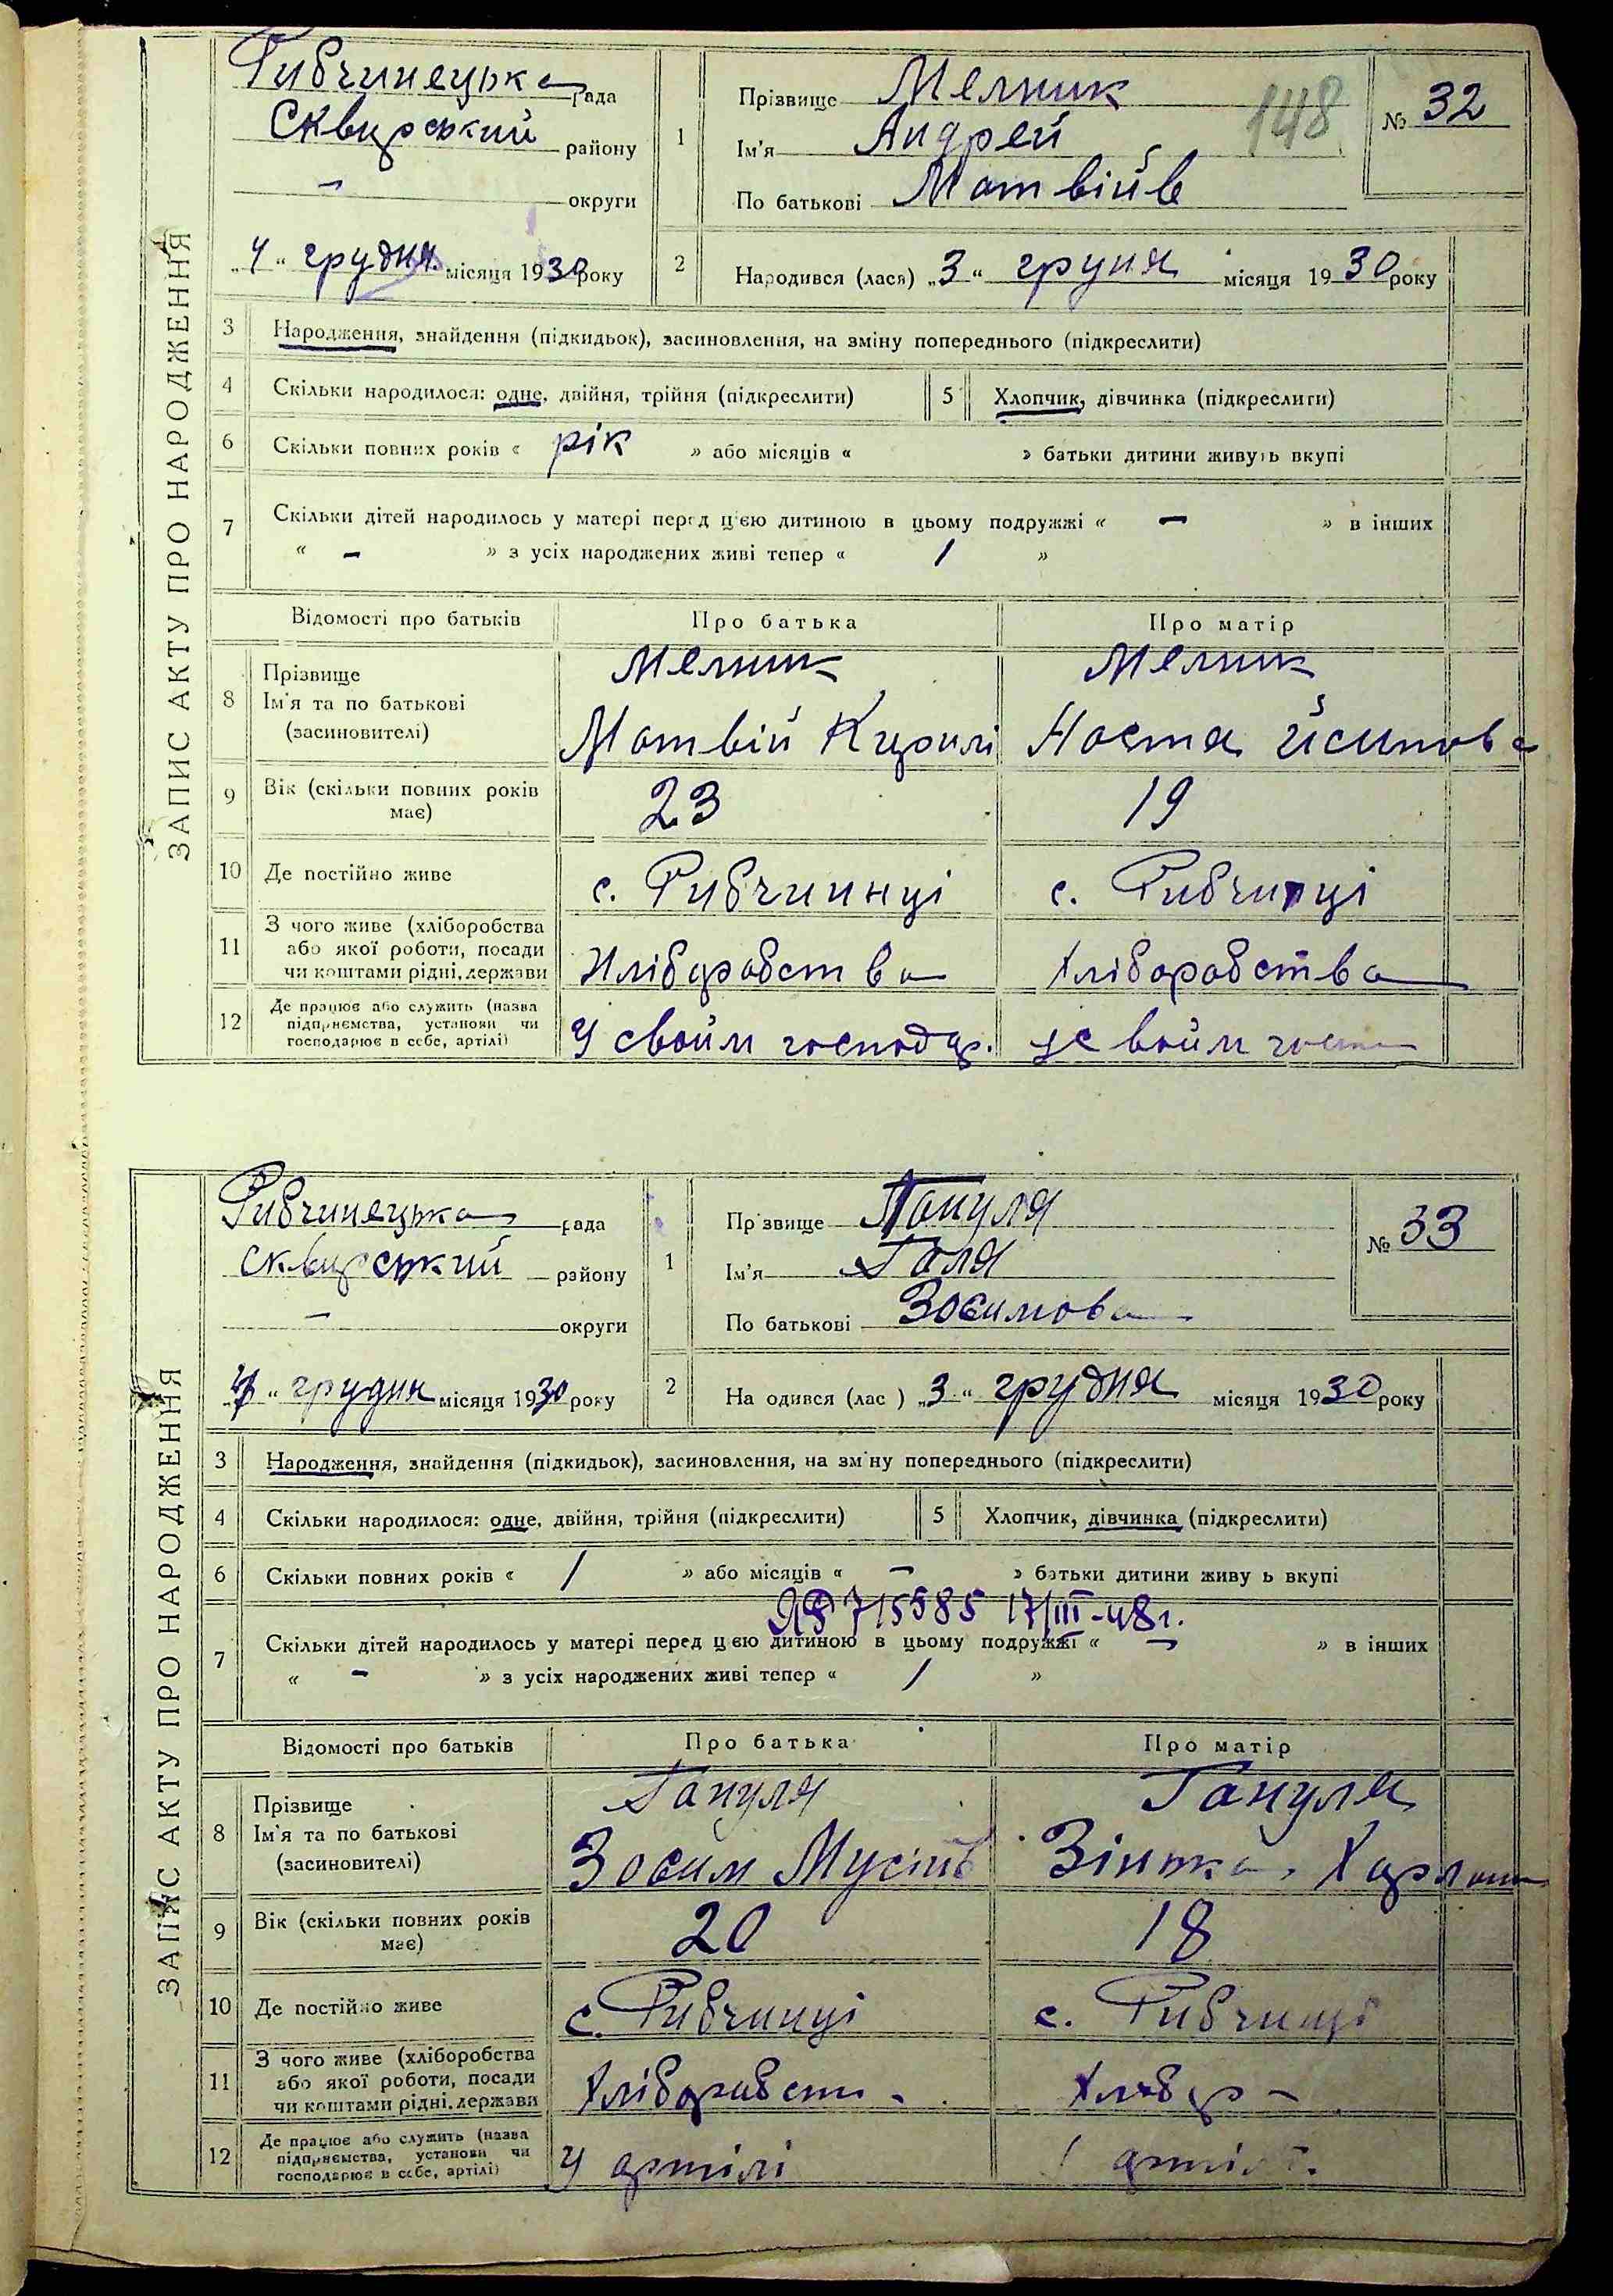 ЗАПИС АКТУ ПРО НАРОДЖЕННЯ
Рибчинецька рада
Сквирський району
— округи
„4“ грудня місяця 1930 року
1 Прізвище Мелник
Ім'я Андрей
По батькові Матвійв
148
№ 32
2 Народився (лася) „3“ груня місяця 1930 року
3 Народження, знайдення (підкидьок), засиновлення, на зміну попереднього (підкреслити)
4 Скільки народилося: одне, двійня, трійня (підкреслити) 5 Хлопчик, дівчинка (підкреслити)
6 Скільки повних років « рік » або місяців « » батьки дитини живуть вкупі
7 Скільки дітей народилось у матері перед цією дитиною в цьому подружжі « — » в інших
« — » з усіх народжених живі тепер « 1 »
Відомості про батьків Про батька Про матір
8 Прізвище Ім'я та по батькові (засиновителі)
Мелник Мелник
Матвій Кирилі Наста Йсипова
9 Вік (скільки повних років має) 23 19
10 Де постійно живе с. Рибчиинці с. Рибчинці
11 З чого живе (хліборобства або якої роботи, посади чи коштами рідні, держави
Хліборобства Хліборобства
12 Де працює або служить (назва підприємства, установи чи господарює в себе, артілі)
У свойм господар. у свойм
ЗАПИС АКТУ ПРО НАРОДЖЕННЯ
Рибчинецька рада
Сквирський району
— округи
грудня місяця 1930 року
1 Прізвище Гануля
Ім'я Галя
По батькові Зосимова
№ 33
2 На одився (лас ) „3“ грудня місяця 1930 року
3 Народження, знайдення (підкидьок), засиновлення, на зм ну попереднього (підкреслити)
4 Скільки народилося: одне, двійня, трійня (підкреслити) 5 Хлопчик, дівчинка (підкреслити)
6 Скільки повних років « 1 » або місяців « — » батьки дитини живу ь вкупі
715585 17/III-48г.
7 Скільки дітей народилось у матері перед цією дитиною в цьому подружжі « — » в інших
« — » з усіх народжених живі тепер « 1 »
Відомості про батьків Про батька Про матір
8 Прізвище Ім'я та по батькові (засиновителі)
Гануля Гануля
Зосим Мусіїв Зінька
9 Вік (скільки повних років має) 20 18
10 Де постійно живе с. Рибчинці с. Рибчинці
11 З чого живе (хліборобства або якої роботи, посади чи коштами рідні, держави
Хліборобств
12 Де працює або служить (назва підприємства, установи чи господарює в себе, артілі)
У артілі артілі